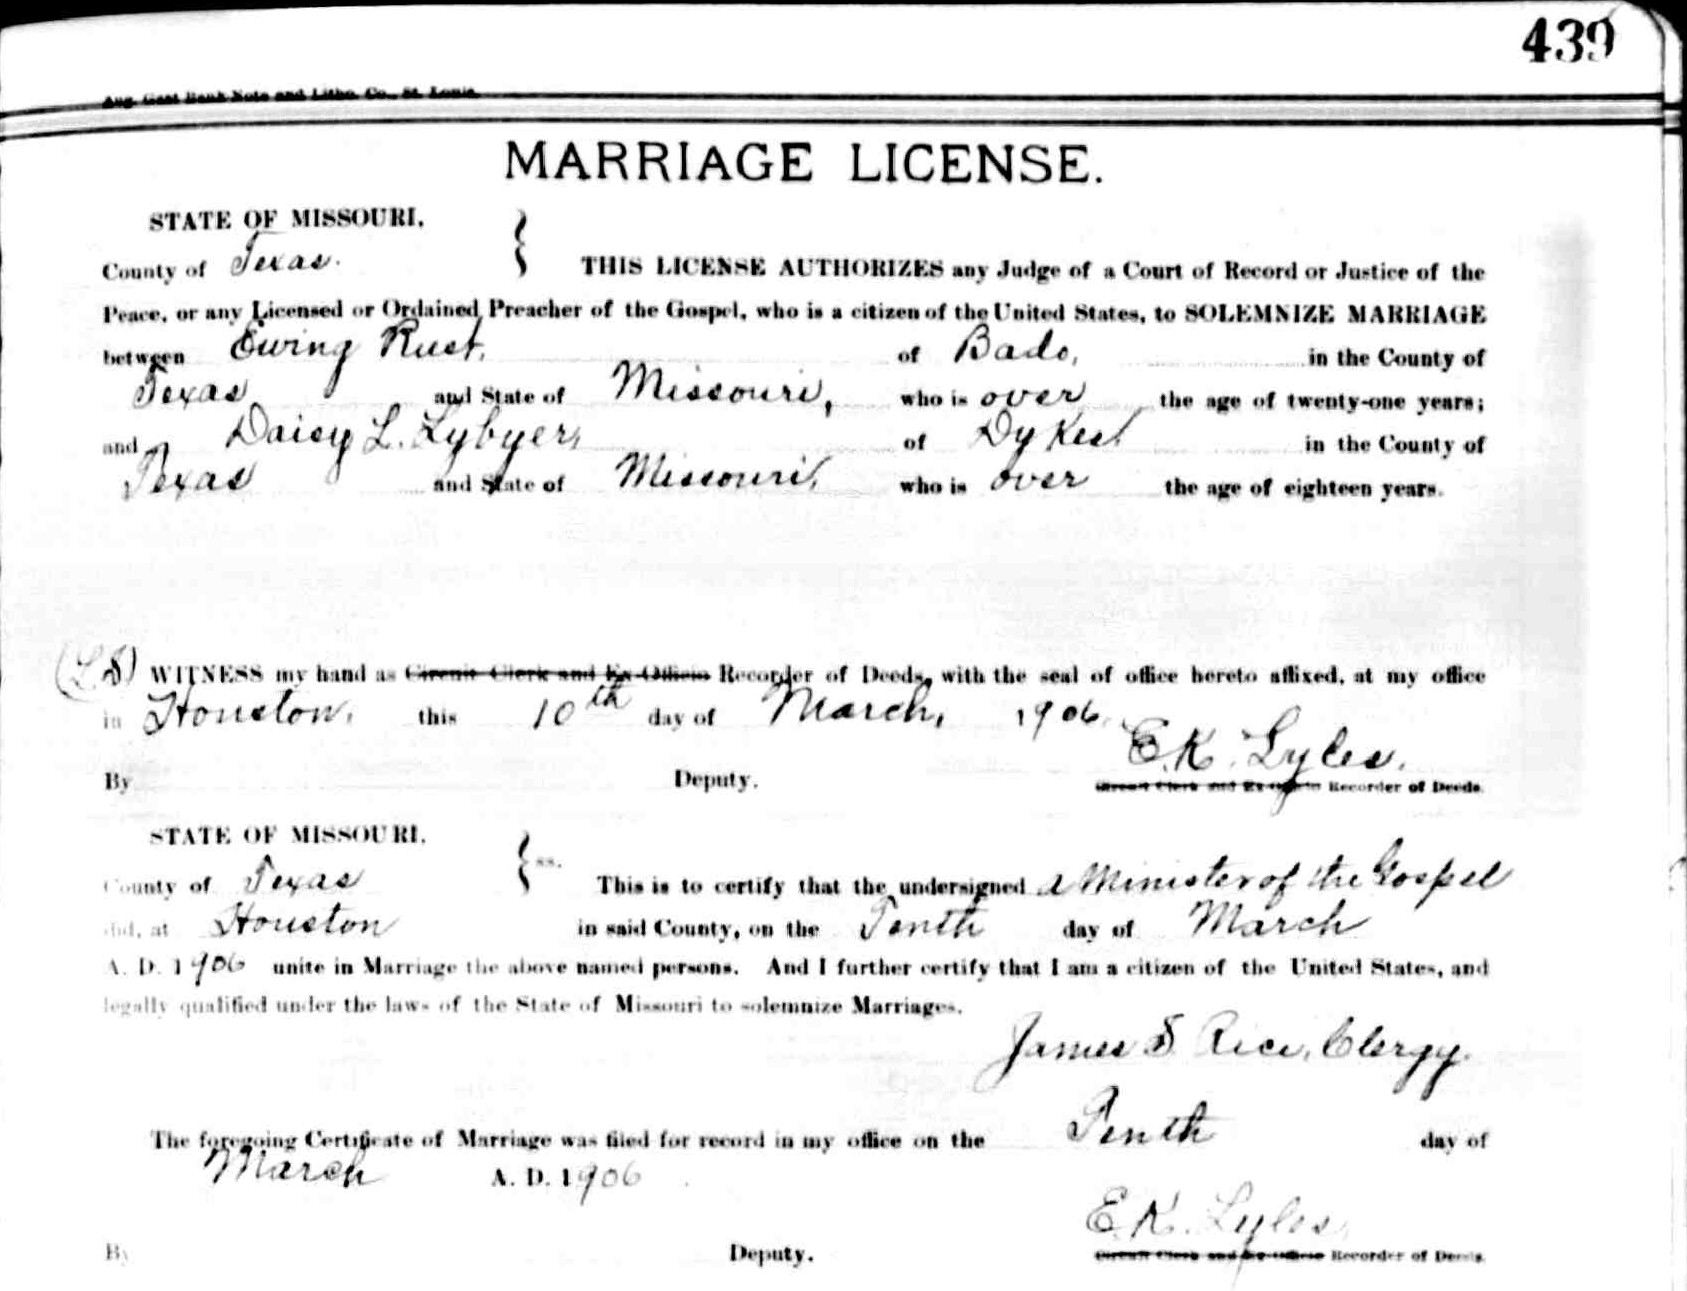 439
Aug. Gast Bank Note and Litho. Co., St. Louis.
MARRIAGE LICENSE.
STATE OF MISSOURI,
County of Texas. } THIS LICENSE AUTHORIZES any Judge of a Court of Record or Justice of the
Peace, or any Licensed or Ordained Preacher of the Gospel, who is a citizen of the United States, to SOLEMNIZE MARRIAGE
between Ewing Rust, of Bado, in the County of
Texas and State of Missouri, who is over the age of twenty-one years;
and Daisy L. Lybyer, of Dykes, in the County of
Texas and State of Missouri, who is over the age of eighteen years.
(L S) WITNESS my hand as Circuit Clerk and Ex-Officio Recorder of Deeds, with the seal of office hereto affixed, at my office
in Houston, this 10th day of March, 1906.
E.K. Lyles.
By Deputy. Circuit Clerk and Ex-Officio Recorder of Deeds.
STATE OF MISSOURI,
County of Texas } ss. This is to certify that the undersigned a Minister of the Gospel
did, at Houston in said County, on the Tenth day of March
A. D. 1906 unite in Marriage the above named persons. And I further certify that I am a citizen of the United States, and
legally qualified under the laws of the State of Missouri to solemnize Marriages.
James S Rice, Clergy.
The foregoing Certificate of Marriage was filed for record in my office on the Tenth day of
March A. D. 1906
E.K. Lyles,
By Deputy. Circuit Clerk and Ex-Officio Recorder of Deeds.